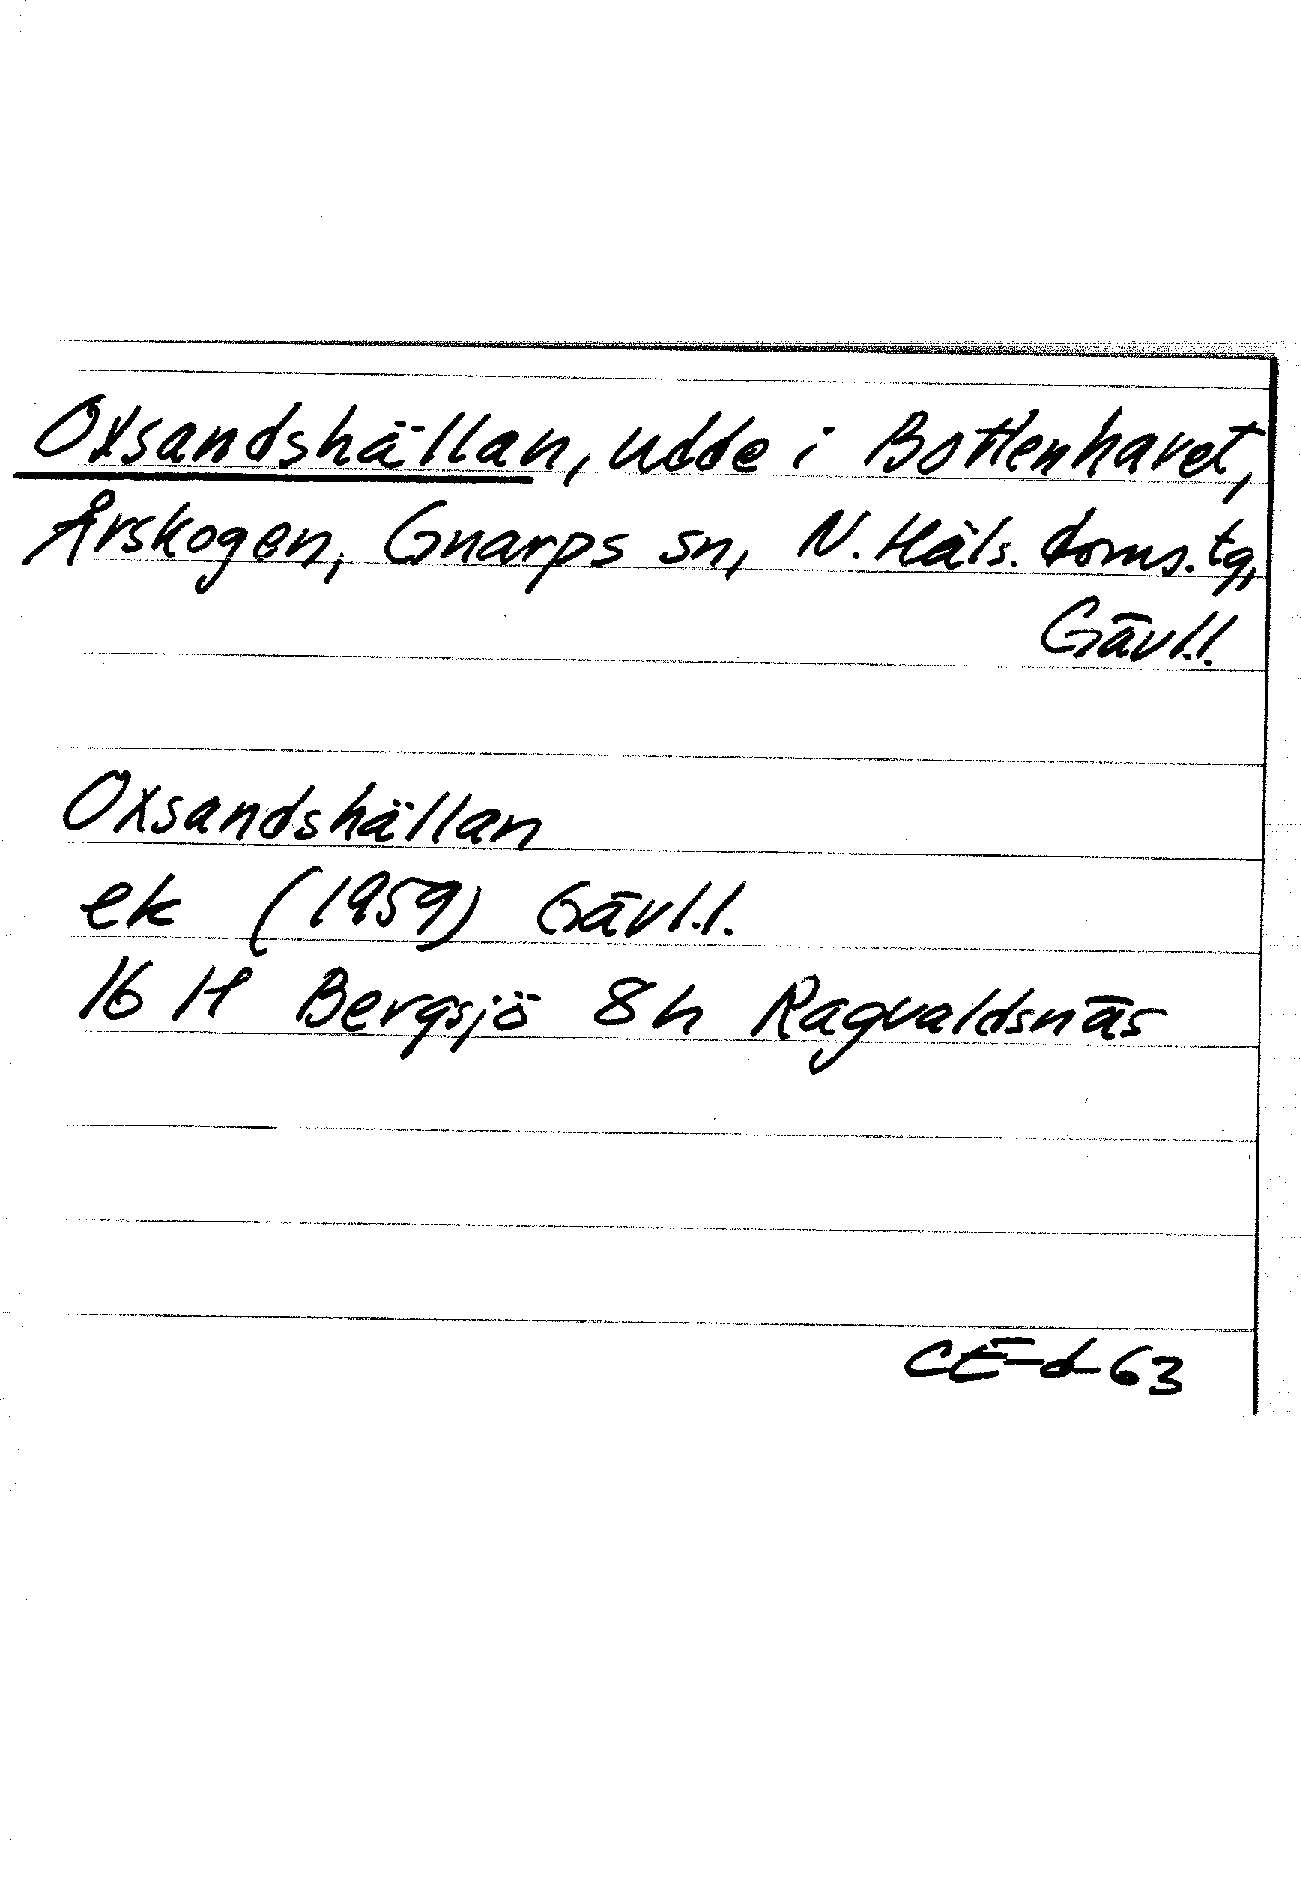 Oxsandshällan, udde i Bottenhavet,
Årskogen, Gnarps sn, N. Häls. doms. tg,
Gävl.l.
Oxsandshällan
ek (1959) Gävl.l.
16 H Bergsjö 8h Ragvaldsnäs
CE-d-63